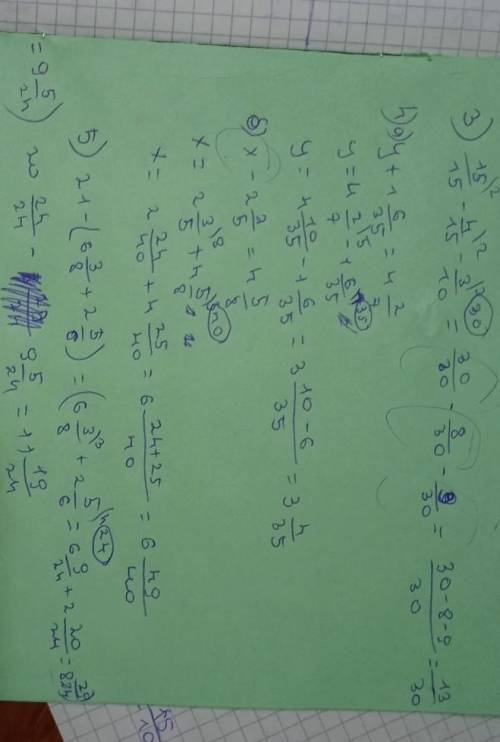 3) 15/15 - 4/15 - 3/10 = 30/30 - 8/30 - 9/30 = (30-8-9)/30 = 13/30
4) a) y + 1 6/35 = 4 2/7
y = 4 2/7 - 1 6/35
y = 4 10/35 - 1 6/35 = 3 (10-6)/35 = 3 4/35
б) x - 2 3/5 = 4 5/8
x = 2 3/5 + 4 5/8
x = 2 24/40 + 4 25/40 = 6 (24+25)/40 = 6 49/40
5) 21 - (6 3/8 + 2 5/6) = (6 3/8 + 2 5/6 = 6 9/24 + 2 20/24 = 8 29/24
= 9 5/24) 20 24/24 - 9 5/24 = 11 19/24